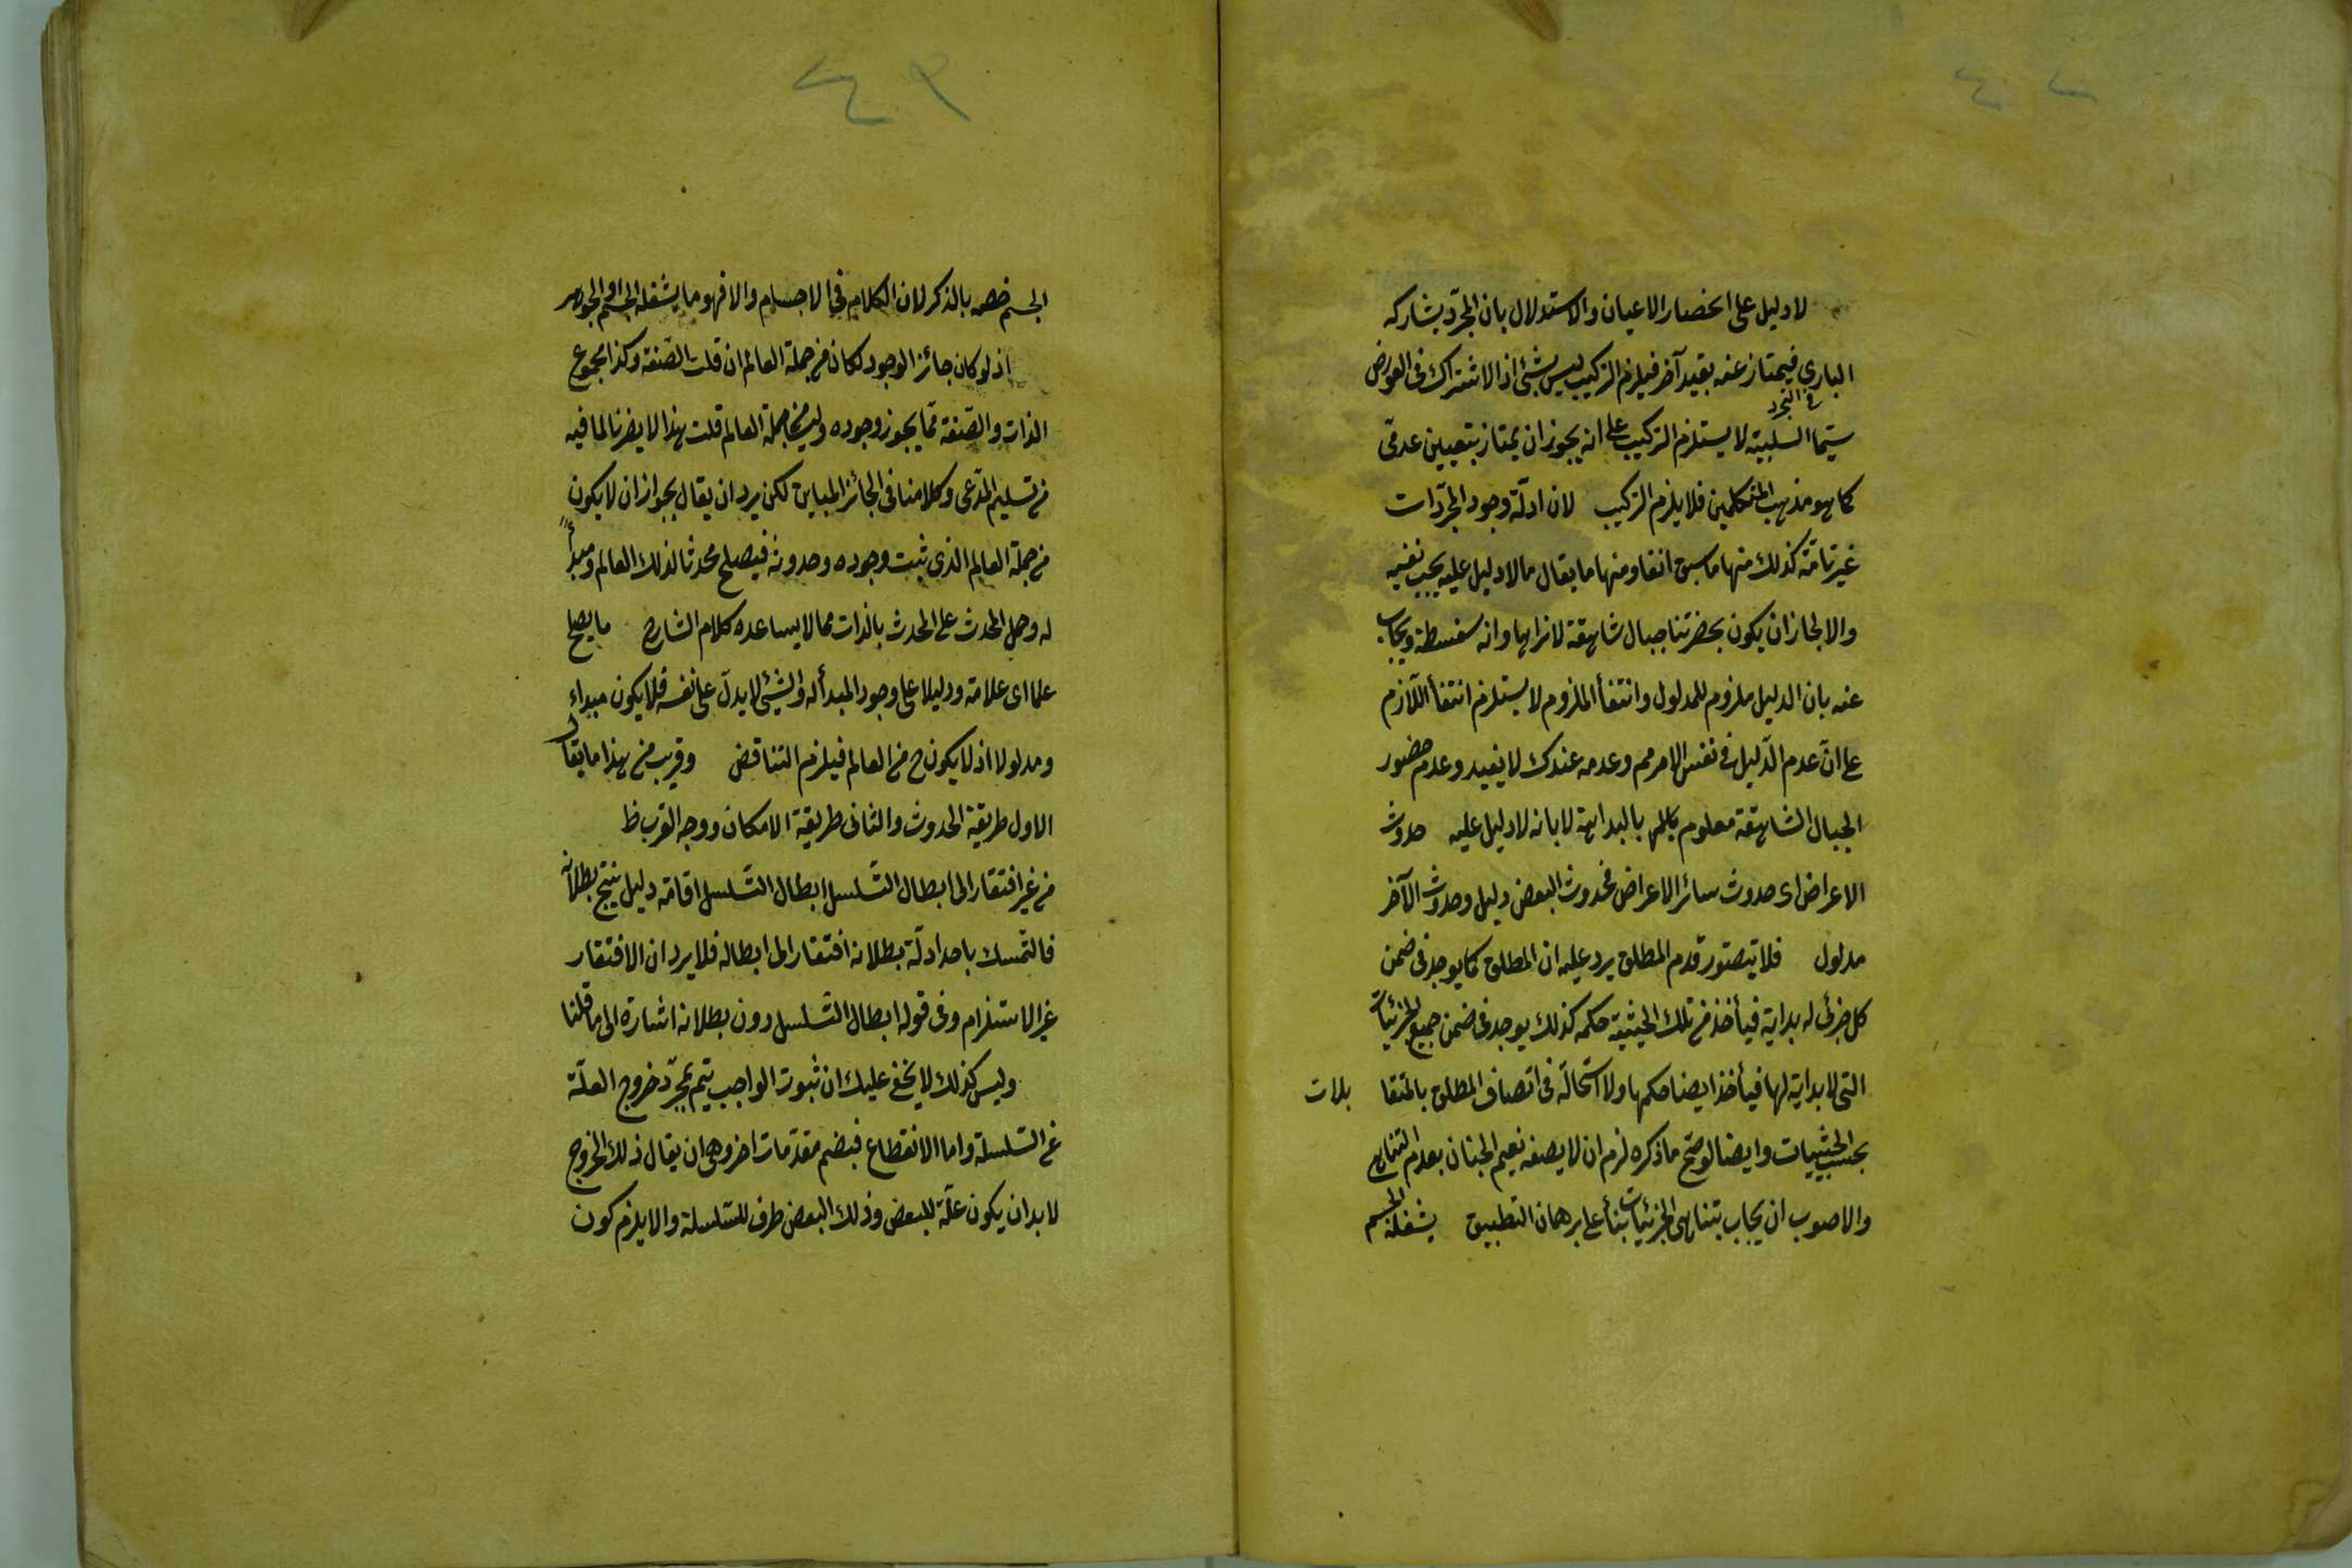 لا دليل على انحصار الاعيان والاستدلال بان المجرّد يشاركه
الباري فيمتاز عنه بقيد آخر فيلزم التركيب ليس بشئ اذ الاشتراك فى العوارض
فى التجرد
سيّما السلبية لا يستلزم التركيب على انه يجوز ان يمتاز بتعيين عدمى
كما هو مذهب المتكلمين فلا يلزم التركيب لان ادلّة وجود المجرّدات
غير تامّة كذلك منها ما سبق انفا ومنها ما يقال ما لا دليل عليه يجب نفيه
والا لجاز ان يكون بحضرتنا جبال شاهقة لا نراها وانه سفسطة ويجاب
عنه بان الدليل ملزوم للمدلول وانتفأ الملزوم لا يستلزم انتفأ اللّازم
على انّ عدم الدّليل فى نفس الامر مم وعدمه عندك لا يفيد وعدم حضور
الجبال الشاهقة معلوم بالبداهة لا بانه لا دليل عليه حدوث
الاعراض اى حدوث سائر الاعراض فحدوث البعض دليل وحدوث الآخر
مدلول فلا يتصوّر قدم المطلق يرد عليه ان المطلق كما يوجد فى ضمن
كل جزئى له بداية فيأخذ من تلك الحيثية حكمه كذلك يوجد فى ضمن جميع الجزئيات
التى لا بداية لها فيأخذ ايضا حكمها ولا استحالة فى اتصاف المطلق بالمتقا بلات
بحسب الحيثيات وايضا لو صحّ ما ذكره لزم ان لا يصف نعيم الجنان بعدم التناهى
والاصوب ان يجاب بتناهى الجزئيات بنأ على برهان التطبيق يشغله الجسم
٤٣
الجسم خصه بالذكر لان الكلام فى الاجسام والا فهو ما يشغله الجسم او الجوهر
اذ لو كان جائز الوجود لكان من جملة العالم ان قلت الصّفة وكذا مجموع
الذات والصّفة ممّا يجوز وجوده وليس من جملة العالم قلت هذا لا يضرنا لما فيه
من تسليم المدّعى وكلامنا فى الجائز المباين لكن يرد ان يقال يجوز ان لا يكون
من جملة العالم الذى ثبت وجوده وحدوثه فيصلح محدثا لذلك العالم ومبدأً
له وحمل المحدث على المحدث بالذات مما لا يساعده كلام الشارح ما يصلح
علما اى علامة ودليلا على وجود المبدأ له والشيئ لا يدلّ على نفسه فلا يكون مبداء
ومدلولا اذ لا يكون ح من العالم فيلزم التناقض وقريب من هذا ما يقال
الاول طريقة الحدوث والثانى طريقة الامكان ووجه القرب ظ
من غير افتقار الى ابطال التسلسل ابطال التسلسل اقامة دليل ينتج بطلانه
فالتمسك باحد ادلّة بطلانه افتقار الى ابطاله فلا يرد ان الافتقار
غير الاستلزام وفى قوله ابطال التسلسل دون بطلانه اشارة الى ما قلنا
وليس كذلك لا يخفى عليك ان ثبوت الواجب يتم بمجرّد خروج العلّة
عن السّلسلة واما الانقطاع فبضم مقدّمات اخر وهى ان يقال ذلك الخروج
لا بد ان يكون علّة للبعض وذلك البعض طرف للسّلسلة والا يلزم كون